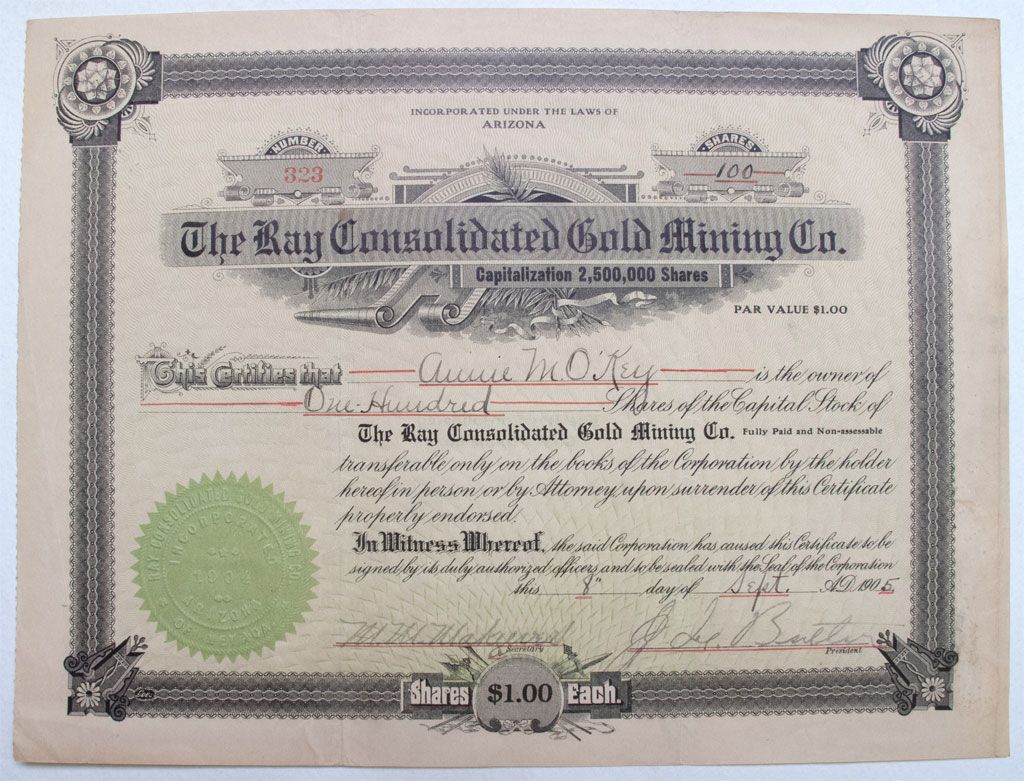 INCORPORATED UNDER THE LAWS OF
ARIZONA
NUMBER
323
SHARES
100
The Ray Consolidated Gold Mining Co.
Capitalization 2,500,000 Shares
PAR VALUE $1.00
This Certifies that Annie M. O'Key is the owner of
One-Hundred Shares of the Capital Stock of
The Ray Consolidated Gold Mining Co. Fully Paid and Non-assessable
transferable only on the books of the Corporation by the holder
hereof in person or by Attorney upon surrender of this Certificate
properly endorsed.
In Witness Whereof, the said Corporation has caused this Certificate to be
signed by its duly authorized officers and to be sealed with the Seal of the Corporation
this 8" day of Sept. A.D. 1905.
RAY CONSOLIDATED
INCORPORATED
Secretary
President
Shares $1.00 Each.